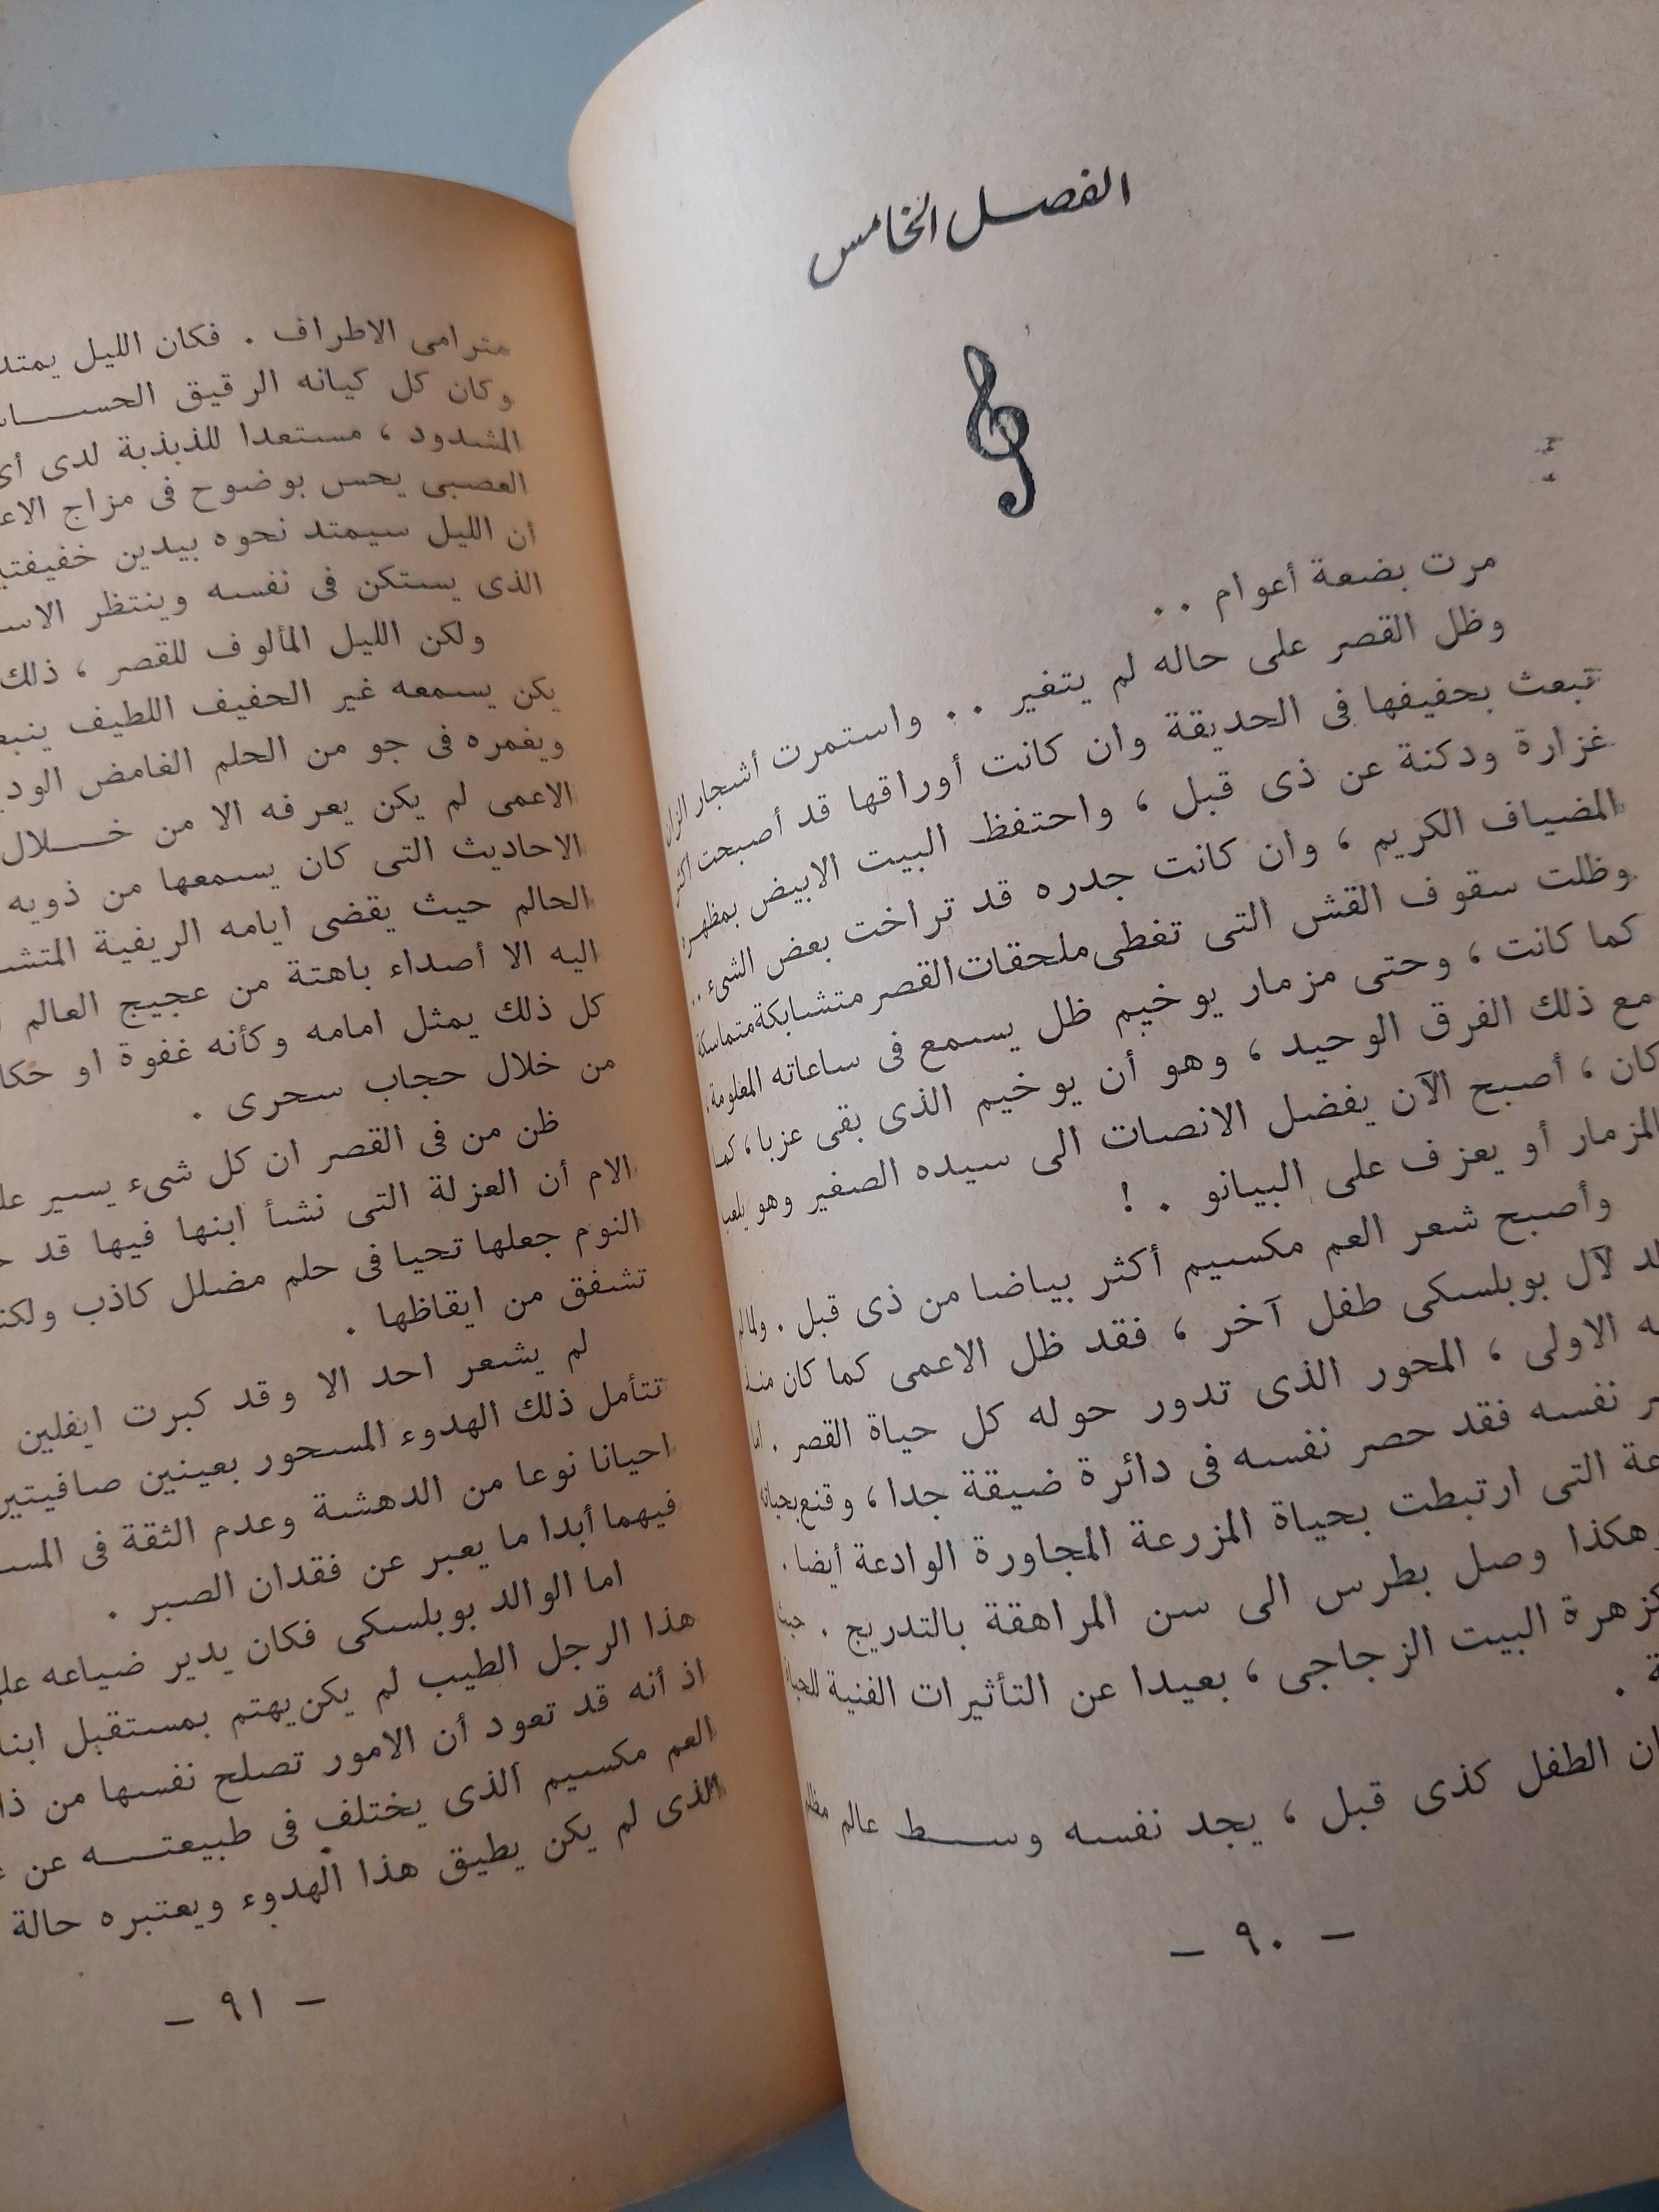 الفصل الخامس
مرت بضعة أعوام ..
وظل القصر على حاله لم يتغير .. واستمرت أشجار الزان
تبعث بحفيفها فى الحديقة وان كانت أوراقها قد أصبحت أكثر
غزارة ودكنة عن ذى قبل ، واحتفظ البيت الابيض بمظهره
المضياف الكريم ، وان كانت جدره قد تراخت بعض الشىء ..
وظلت سقوف القش التى تغطى ملحقات القصر متشابكة متماسكة
كما كانت ، وحتى مزمار يوخيم ظل يسمع فى ساعاته المعلومة،
مع ذلك الفرق الوحيد ، وهو أن يوخيم الذى بقى عزبا ، كما
كان ، أصبح الآن يفضل الانصات الى سيده الصغير وهو يلعب
المزمار أو يعزف على البيانو . !
وأصبح شعر العم مكسيم أكثر بياضا من ذى قبل . ولما لم
لآل بوبلسكى طفل آخر ، فقد ظل الاعمى كما كان منذ
الاولى ، المحور الذى تدور حوله كل حياة القصر . اما
نفسه فقد حصر نفسه فى دائرة ضيقة جدا ، وقنع بحياته
التى ارتبطت بحياة المزرعة المجاورة الوادعة أيضا .
وهكذا وصل بطرس الى سن المراهقة بالتدريج . حيث
كزهرة البيت الزجاجى ، بعيدا عن التأثيرات الفنية للحياة
.
الطفل كذى قبل ، يجد نفسه وسط عالم مظلم
- ٩٠ -
مترامى الاطراف . فكان الليل يمتد
وكان كل كيانه الرقيق
المشدود ، مستعدا للذبذبة لدى أى
العصبى يحس بوضوح فى مزاج
أن الليل سيمتد نحوه بيدين
الذى يستكن فى نفسه وينتظر
ولكن الليل المألوف للقصر ، ذلك
يكن يسمعه غير الحفيف اللطيف
ويغمره فى جو من الحلم الغامض
الاعمى لم يكن يعرفه الا من خلال
الاحاديث التى كان يسمعها من ذويه
الحالم حيث يقضى ايامه الريفية
اليه الا أصداء باهتة من عجيج العالم
كل ذلك يمثل امامه وكأنه غفوة او
من خلال حجاب سحرى .
ظن من فى القصر ان كل شىء يسير
الام أن العزلة التى نشأ ابنها فيها قد
النوم جعلها تحيا فى حلم مضلل كاذب
تشفق من ايقاظها .
لم يشعر احد الا وقد كبرت ايفلين
تتأمل ذلك الهدوء المسحور بعينين صافيتين
احيانا نوعا من الدهشة وعدم الثقة فى
فيهما أبدا ما يعبر عن فقدان الصبر .
اما الوالد بوبلسكى فكان يدير ضياعه
هذا الرجل الطيب لم يكن يهتم بمستقبل
اذ أنه قد تعود أن الامور تصلح نفسها من
العم مكسيم الذى يختلف فى طبيعته عن
الذى لم يكن يطيق هذا الهدوء ويعتبره حالة
- ٩١ -